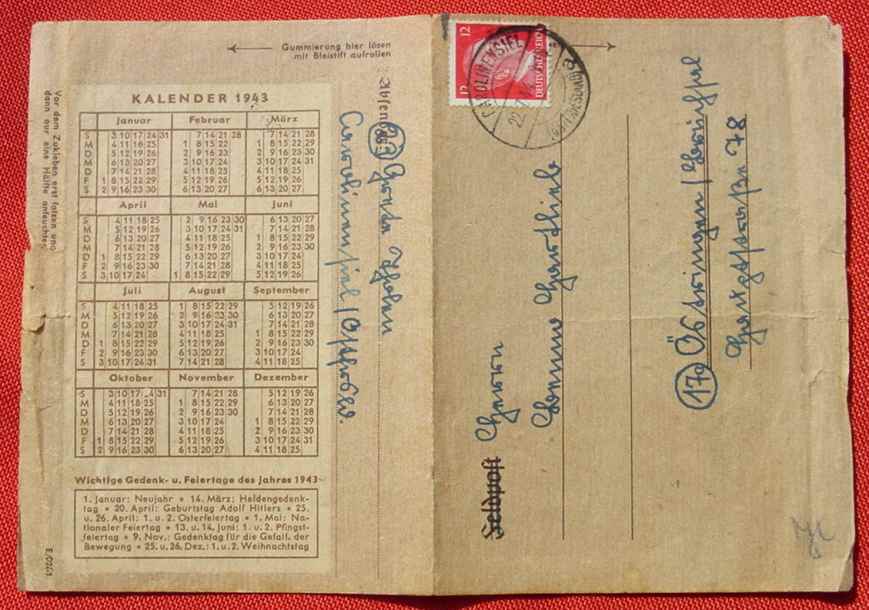 Gummierung hier lösen
mit Bleistift aufrollen
Vor dem Zukleben erst falzen und
dann nur eine Hälfte anfeuchten
KALENDER 1943
Januar Februar März
S 3 10 17 24 31 7 14 21 28 7 14 21 28
M 4 11 18 25 1 8 15 22 1 8 15 22 29
D 5 12 19 26 2 9 16 23 2 9 16 23 30
M 6 13 20 27 3 10 17 24 3 10 17 24 31
D 7 14 21 28 4 11 18 25 4 11 18 25
F 1 8 15 22 29 5 12 19 26 5 12 19 26
S 2 9 16 23 30 6 13 20 27 6 13 20 27
April Mai Juni
S 4 11 18 25 2 9 16 23 30 6 13 20 27
M 5 12 19 26 3 10 17 24 31 7 14 21 28
D 6 13 20 27 4 11 18 25 1 8 15 22 29
M 7 14 21 28 5 12 19 26 2 9 16 23 30
D 1 8 15 22 29 6 13 20 27 3 10 17 24
F 2 9 16 23 30 7 14 21 28 4 11 18 25
S 3 10 17 24 1 8 15 22 29 5 12 19 26
Juli August September
S 4 11 18 25 1 8 15 22 29 5 12 19 26
M 5 12 19 26 2 9 16 23 30 6 13 20 27
D 6 13 20 27 3 10 17 24 31 7 14 21 28
M 7 14 21 28 4 11 18 25 1 8 15 22 29
D 1 8 15 22 29 5 12 19 26 2 9 16 23 30
F 2 9 16 23 30 6 13 20 27 3 10 17 24
S 3 10 17 24 31 7 14 21 28 4 11 18 25
Oktober November Dezember
S 3 10 17 24 31 7 14 21 28 5 12 19 26
M 4 11 18 25 1 8 15 22 29 6 13 20 27
D 5 12 19 26 2 9 16 23 30 7 14 21 28
M 6 13 20 27 3 10 17 24 1 8 15 22 29
D 7 14 21 28 4 11 18 25 2 9 16 23 30
F 1 8 15 22 29 5 12 19 26 3 10 17 24 31
S 2 9 16 23 30 6 13 20 27 4 11 18 25
Wichtige Gedenk- u. Feiertage des Jahres 1943
1. Januar: Neujahr * 14. März: Heldengedenk-
tag * 20. April: Geburtstag Adolf Hitlers * 25.
u. 26. April: 1. u. 2. Osterfeiertag * 1. Mai: Na-
tionaler Feiertag * 13. u. 14. Juni: 1. u. 2. Pfingst-
feiertag * 9. Nov.: Gedenktag für die Gefall. der
Bewegung * 25. u. 26. Dez.: 1. u. 2. Weihnachtstag
Carolinensiel / Ostfriesld.
12 12
DEUTSCHES REICH
CAROLINENSIEL
Feldpost
Herrn
(17a) Östringen / Bruchsal
78